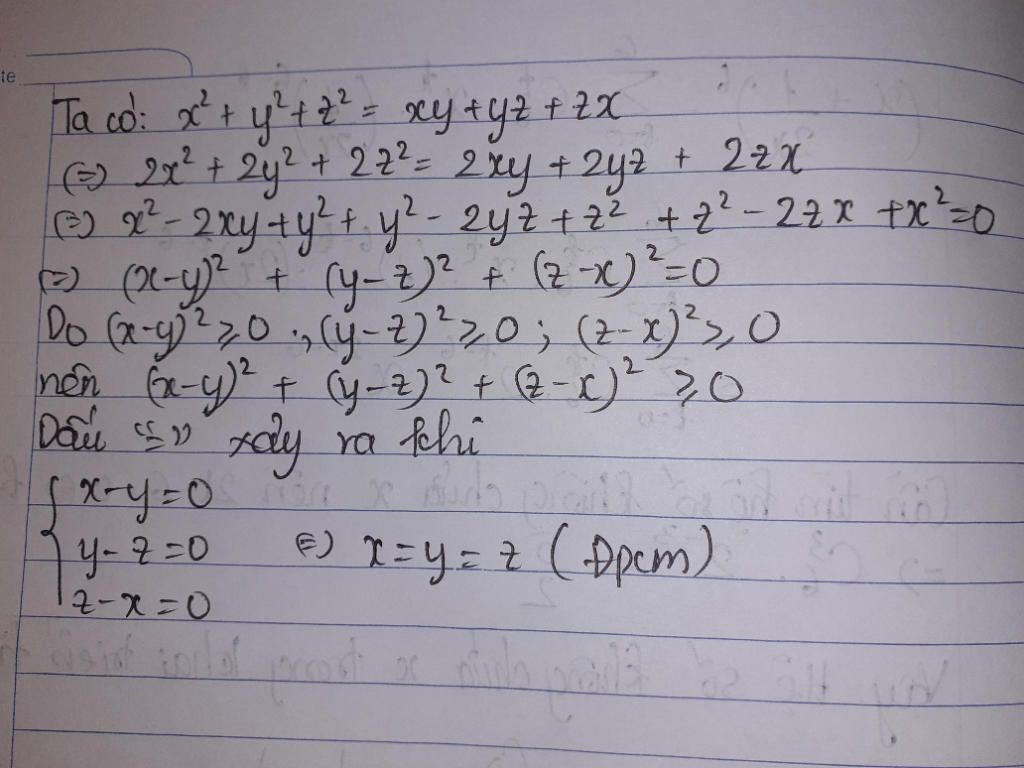 te
Ta có: x² + y² + z² = xy + yz + zx
(=) 2x² + 2y² + 2z² = 2xy + 2yz + 2zx
(=) x² - 2xy + y² + y² - 2yz + z² + z² - 2zx + x² = 0
(=) (x-y)² + (y-z)² + (z-x)² = 0
Do (x-y)² ≥ 0 ; (y-z)² ≥ 0 ; (z-x)² ≥ 0
nên (x-y)² + (y-z)² + (z-x)² ≥ 0
Dấu "=" xảy ra khi
x-y=0
y-z=0 (=) x=y=z (Đpcm)
z-x=0